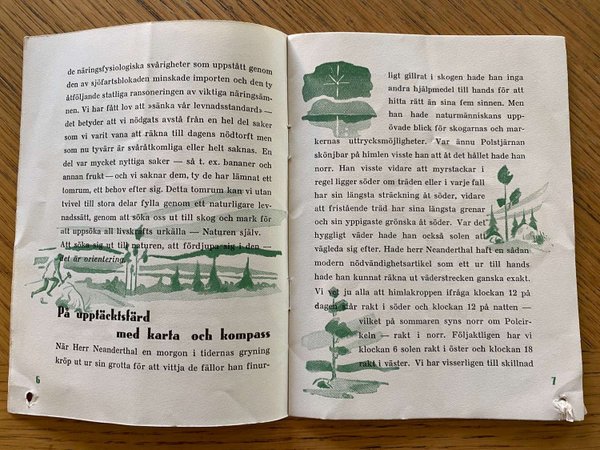 de näringsfysiologiska svårigheter som uppstått genom
den av sjöfartsblokaden minskade importen och den ty
åtföljande statliga ransoneringen av viktiga näringsäm-
nen. Vi har fått lov att »sänka vår levnadsstandard» —
det betyder att vi nödgats avstå från en hel del saker
som vi varit vana att räkna till dagens nödtorft men
som nu tyvärr är svåråtkomliga eller helt saknas. En
del var mycket nyttiga saker — så t. ex. bananer och
annan frukt — och vi saknar dem, ty de har lämnat ett
tomrum, ett behov efter sig. Detta tomrum kan vi utan
tvivel till stora delar fylla genom ett naturligare lev-
nadssätt, genom att söka oss ut till skog och mark för
att uppsöka all livskrafts urkälla — Naturen själv.
Att söka sig ut till naturen, att fördjupa sig i den —
det är orientering.
På upptäcktsfärd
med karta och kompass
När Herr Neanderthal en morgon i tidernas gryning
kröp ut ur sin grotta för att vittja de fällor han finur-
6
ligt gillrat i skogen hade han inga
andra hjälpmedel till hands för att
hitta rätt än sina fem sinnen. Men
han hade naturmänniskans upp-
övade blick för skogarnas och mar-
kernas uttrycksmöjligheter. Var ännu Polstjärnan
skönjbar på himlen visste han att åt det hållet hade han
norr. Han visste vidare att myrstackar i
regel ligger söder om träden eller i varje fall
har sin längsta sträckning åt söder, vidare
att fristående träd har sina längsta grenar
och sin yppigaste grönska åt söder. Var det
hyggligt väder hade han också solen att
vägleda sig efter. Hade herr Neanderthal haft en sådan
modern nödvändighetsartikel som ett ur till hands
hade han kunnat räkna ut väderstrecken ganska exakt.
Vi vet ju alla att himlakroppen ifråga klockan 12 på
dagen står rakt i söder och klockan 12 på natten —
vilket på sommaren syns norr om Polcir-
keln — rakt i norr. Följaktligen har vi
klockan 6 solen rakt i öster och klockan 18
rakt i väster. Vi har visserligen till skillnad
7